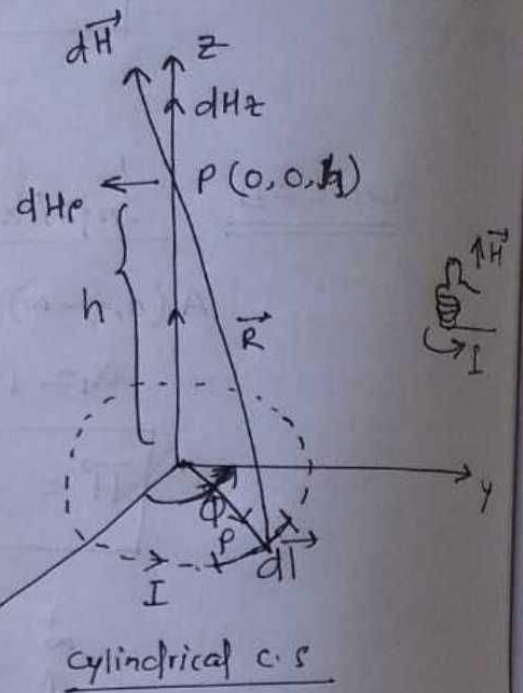 dH
z
dHz
P (0, 0, h)
dHρ
h
R
H
I
y
ϕ
ρ
dl
I
Cylindrical c.s